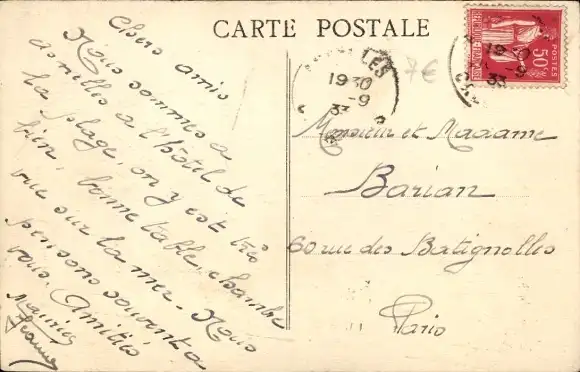 CARTE POSTALE
Chers amis
Nous sommes a
à l'hôtel de
la plage, on y est très
bien, bonne table, chambre
vue sur la mer. Nous
pensons souvent a
vous. Amitiés
Maurice
Jeanne
1930
-9
33
7€
1930
-9
33
POSTES
50c
Monsieur et Madame
Barian
60 rue des Batignolles
Paris